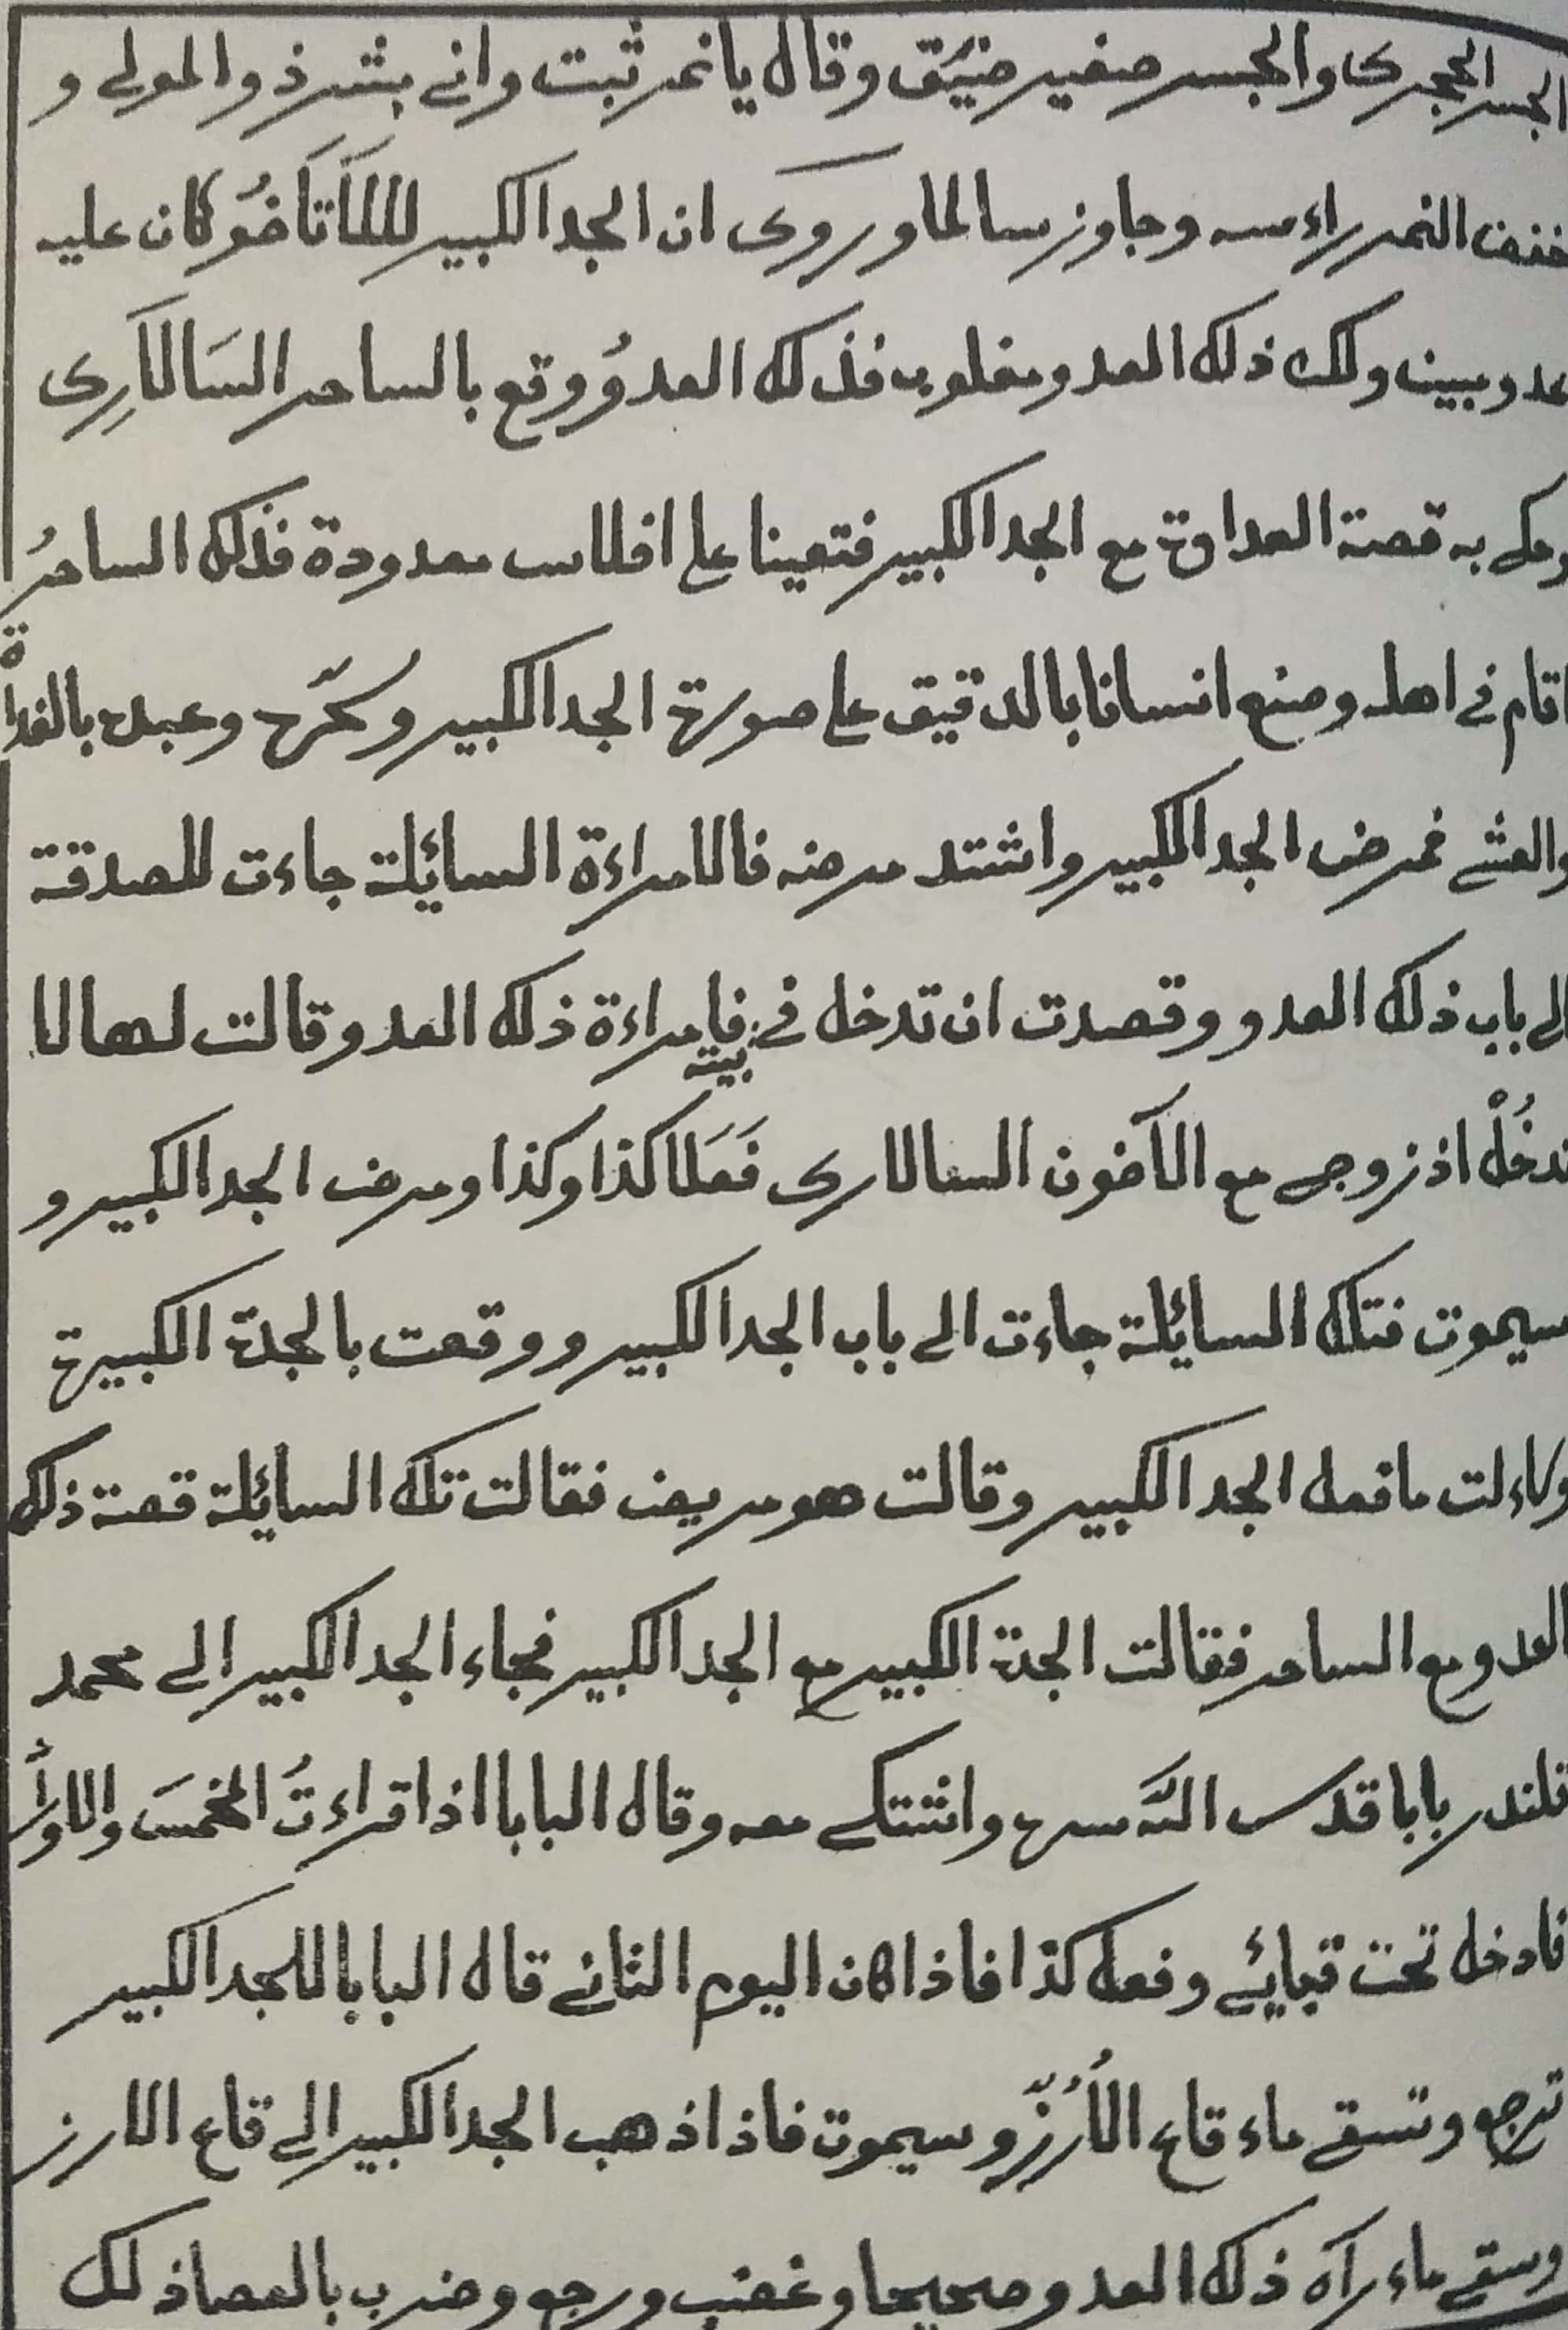 الجسر الحجرى والجسر صغير ضيّق وقال يا نمر ثبت واني بشر ذو المولي و
خفض النمر راءسه وجاوز سالما وروى ان الجد الكبير لللآتَاخُو كان عليه
عدو مبين ولك ذلك العدو مغلوب فذلك العدوُ وقع بالساحر السَالاَرِى
وحكى به قصة العداوة مع الجد الكبير فتعينا علي افلاس معدودة فذلك الساحرُ
اقام في اهله وصنع انسانا بالدقيق علي صورة الجد الكبير وسحّره وعبده بالغداة
والعشي فمرض الجد الكبير واشتد مرضه فالامراءة السائلة جاءت للصدقة
الي باب ذلك العدو وقصدت ان تدخل في بيته فامراءة ذلك العدو قالت لها لا
تدخُلْ اذ زوجي مع الآخون السالارى فَعَلَا كذا وكذا ومرض الجد الكبير و
سيموت فتلك السائلة جاءت الي باب الجد الكبير ووقعت بالجدة الكبيرة
وساءلت ما فعل الجد الكبير وقالت هو مريض فقالت تلك السائلة قصة ذلك
العدو مع الساحر فقالت الجدة الكبير مع الجد الكبير فجاء الجد الكبير الي محمد
قلندر بابا قدس اللّه سره واشتكي معه وقال البابا اذا قراءتَ المخمسَ والاورادَ
فادخل تحت قبائي وفعل كذا فاذا كان اليوم الثاني قال البابا للجد الكبير
ترجع وتسقي ماء قاع الأُرُزّ وسيموت فاذا ذهب الجد الكبير الي قاع الارز
وسقي ماء رآه ذلك العدو صحيحا وغضب ورجع وضرب بالعصا ذلك